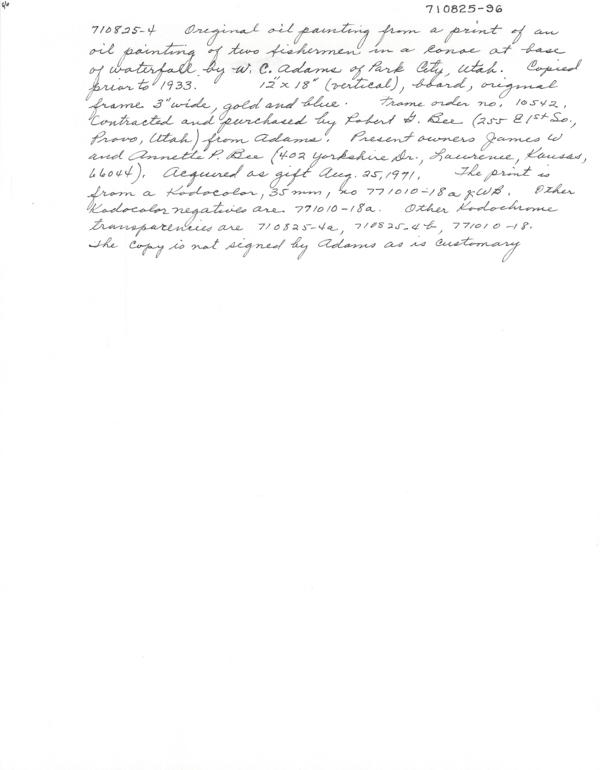 710825-96
710825-4 Original oil painting from a print of an
oil painting of two fishermen in a canoe at base
of waterfall by W. C. Adams of Park City, Utah. Copied
prior to 1933. 12" x 18" (vertical), board, original
frame 3" wide, gold and blue. Frame order no. 10542.
Contracted and purchased by Robert G. Bee (255 E 1st So.,
Provo, Utah) from Adams. Present owners James W
and Annette P. Bee (402 Yorkshire Dr., Lawrence, Kansas,
66044). Acquired as gift Aug. 25, 1971. The print is
from a Kodocolor, 35mm, no 771010-18a JWB. Other
Kodocolor negatives are 771010-18a. Other Kodochrome
transparencies are 710825-4a, 710825-4b, 771010-18.
The copy is not signed by Adams as is customary